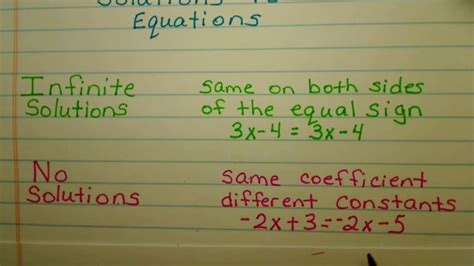 Solutions to
Equations
Infinite Solutions
same on both sides
of the equal sign
3x-4 = 3x-4
No Solutions
same coefficient
different constants
-2x+3=-2x-5